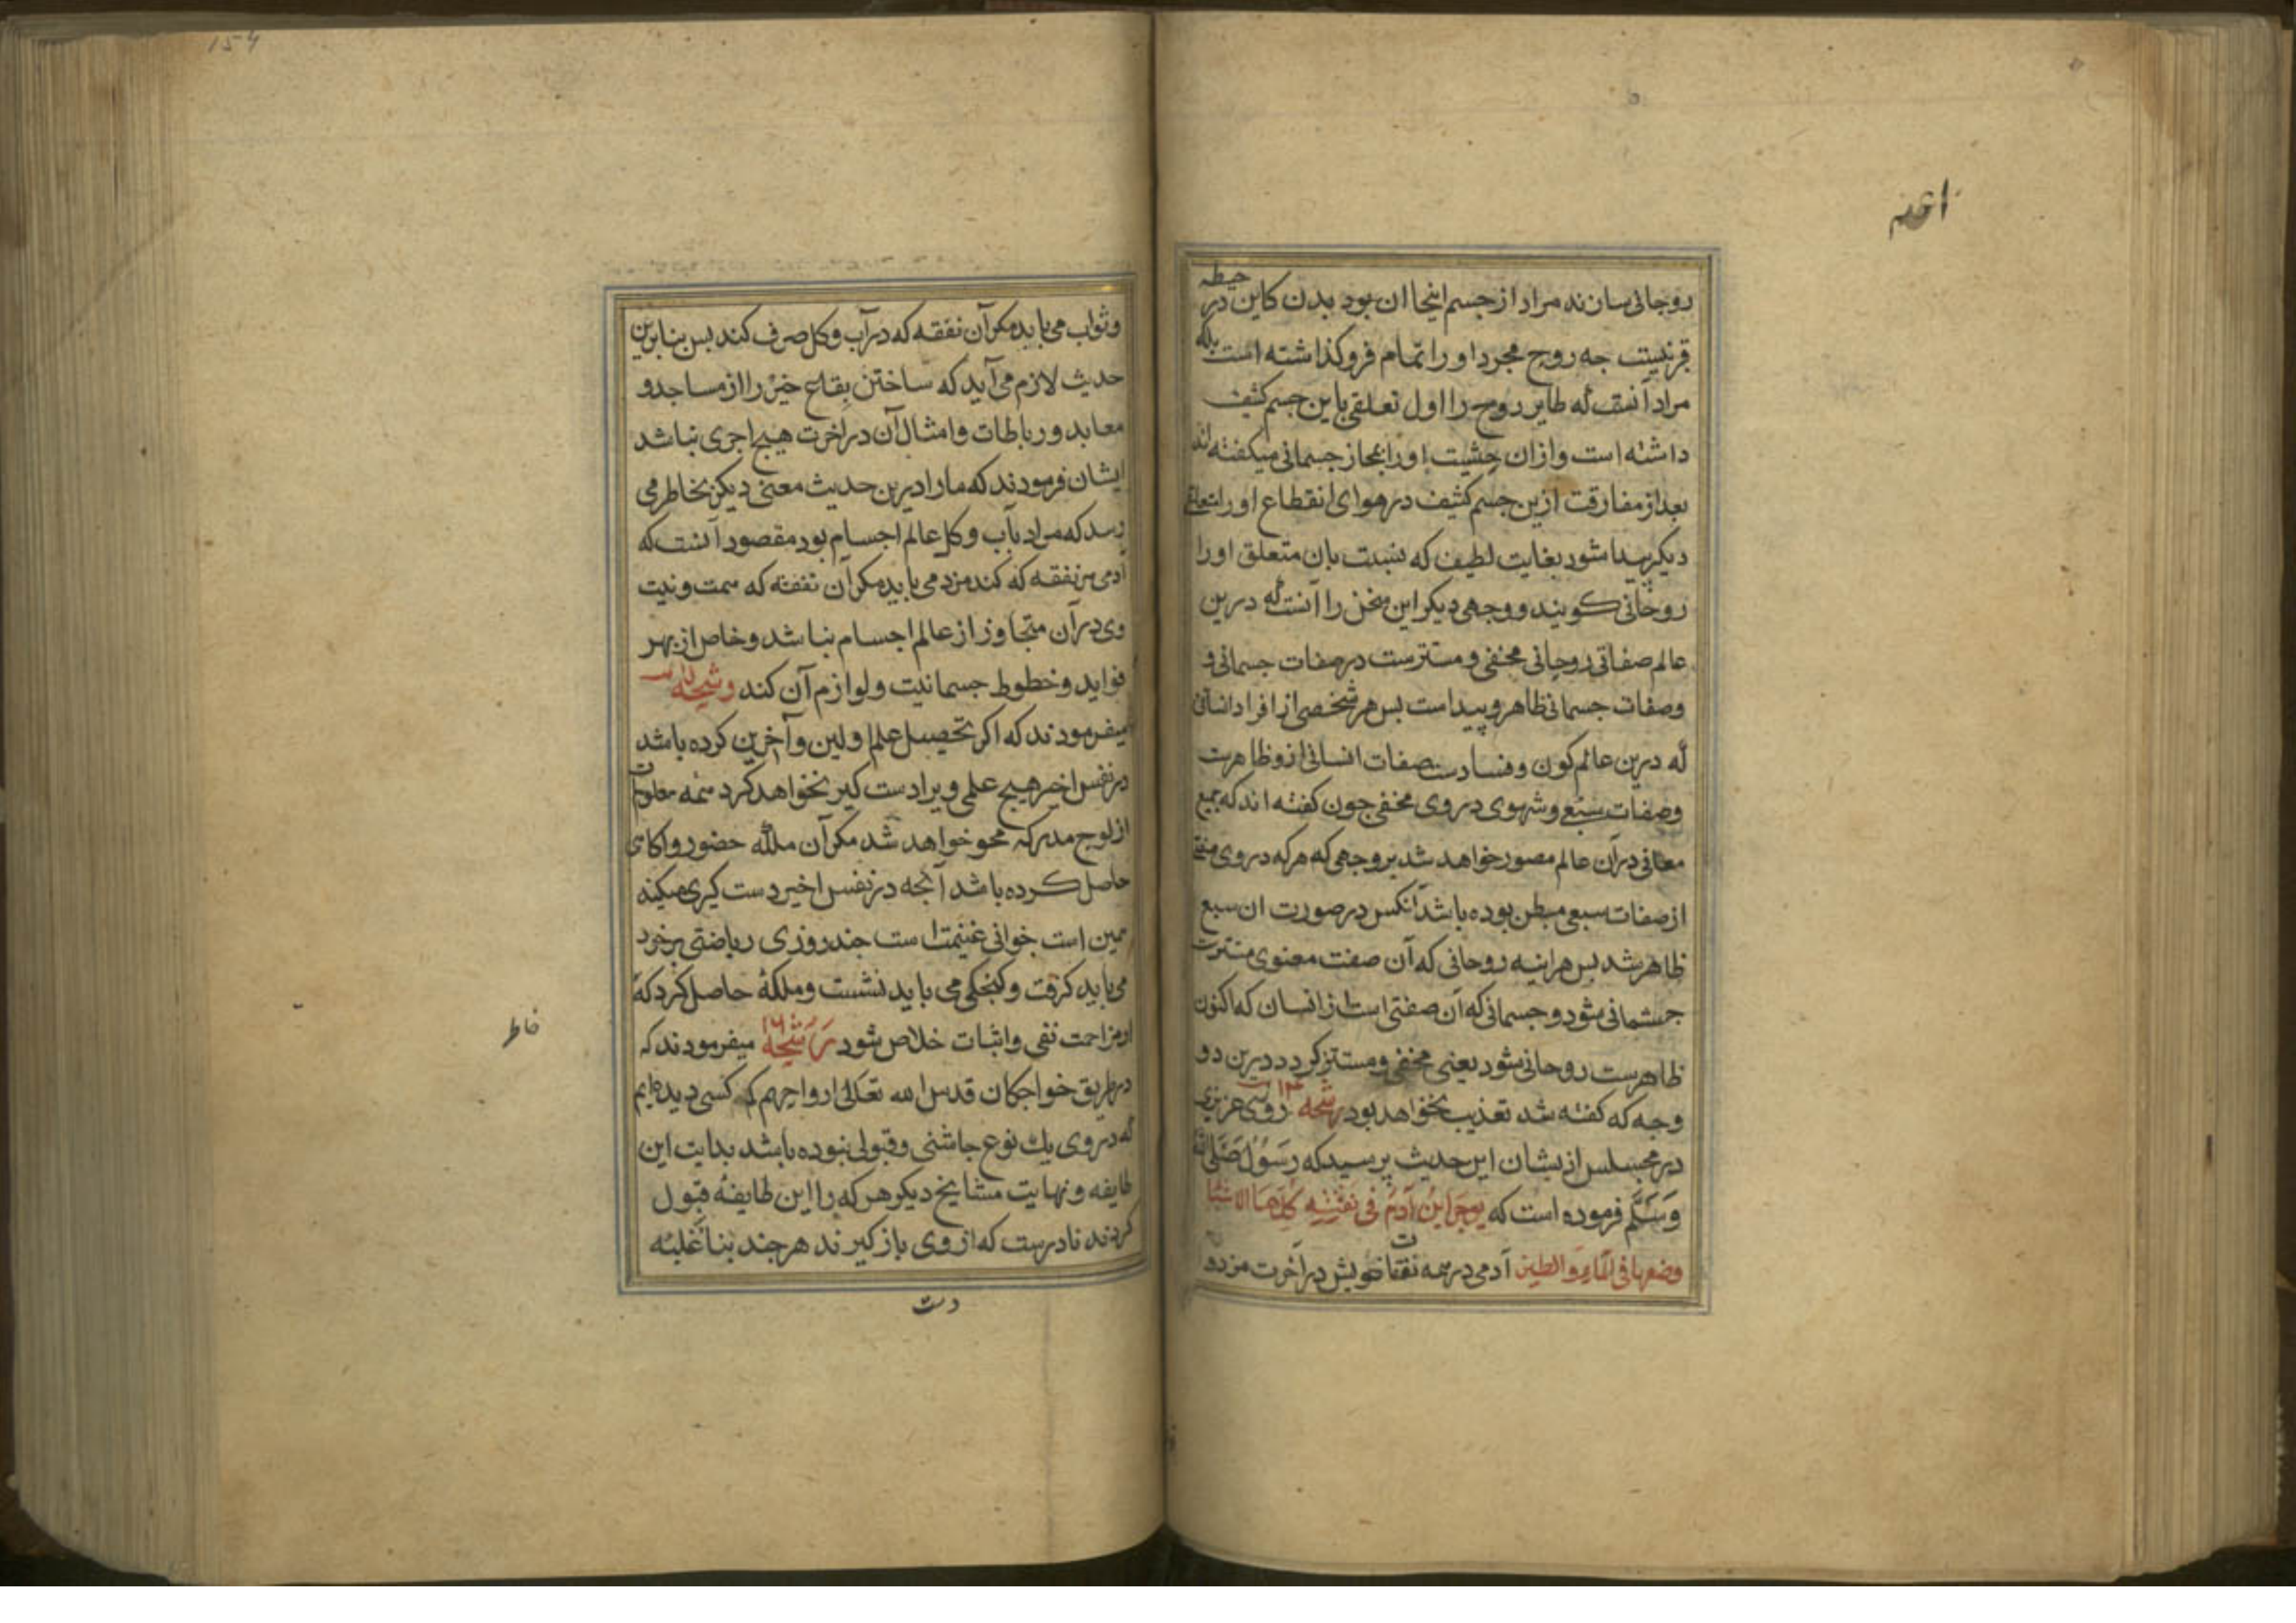 اعنه
روحانی سازند مراد از جسم اینجا ان بود بدن کاین در حیطه
قرنیست جه روح مجرد او را تمام فروکذاشته است بلکه
مراد آنست که طایر روح را اول تعلقی باین جسم کثیف
داشته است وازان حثیت اورا بمجاز جسمانی میکفته اند
بعد از مفارقت ازین جسم کثیف در هوای انقطاع اورا تعلقی
دیکر پیدا شود بغایت لطیف که بنسبت بان متعلق اورا
روحانی کویند ووجهی دیکر این سخن را آنست که درین
عالم صفاتی روحانی مخفی ومستترست در صفات جسمانی و
وصفات جسمانی ظاهر وپیداست بس هر شخصی از افراد انسانی
که درین عالم کون وفسادست صفات انسانی ازو ظاهرست
وصفات سبعی وشهوی در وی مخفی جون کفته اند که جمیع
معانی در آن عالم مصور خواهد شد بر وجهی که هرکه در وی صفتی
از صفات سبعی مبطن بوده باشد آنکس در صورت ان سبع
ظاهر شد بس هراینه روحانی که آن صفت معنوی مستترست
جسمانی شود وجسمانی که آن صفتی است از انسان که اکنون
ظاهرست روحانی شود یعنی مخفی ومستتر کردد درین دو
وجه که کفته شد تعذیب نخواهد بود رشحه ۱۴ روزی عزیزی
در مجلس ازیشان این حدیث پرسید که رَسُولُ صَلَّی اللّٰه
وَسَلَّم فرموده است که یوجر ابنُ آدَمَ فی نفقته کُلِّهَا الا شیئا
وضعها فی المآءِ والطین آدمی در همه نفقات خویش در آخرت مزد و
154
وثواب می یابد مکر آن نفقه که در آب وکل صرف کند بس بنابرین
حدیث لازم می آید که ساختن بقاع خیر را از مساجد و
معابد ورباطات وامثال آن در اخرت هیچ اجری نباشد
ایشان فرمودند که مارا درین حدیث معنی دیکر بخاطر می
رسد که مراد بآب وکل عالم اجسام بود مقصود آنست که
آدمی هر نفقه که کند مزد می یابد مکر آن نفقه که همت ونیت
وی در آن متجاوز از عالم اجسام نباشد وخاص از بهر
فواید وخطوظ جسمانیت ولوازم آن کند رشحه
میفرمودند که اکر تحصیل علم اولین وآخرین کرده باشد
در نفس اخیر هیچ علمی ویرا دست کیر نخواهد کرد همه معلومات
از لوح مدرکه محو خواهد شد مکر آن ملکه حضور واکاهی
حاصل کرده باشد آنجه در نفس اخیر دست کیری میکنه
همین است خوانی غنیمت است جند روزی ریاضتی بر خود
می باید کرفت وکنجکی می باید نشست وملکهٔ حاصل کرد که
از مزاحمت نفی واثبات خلاص شود رَشحهٔ ۱۶ میفرمودند که
در طریق خواجکان قدس الله تعالی ارواحهم کم کسی دیده ایم
که در وی یك نوع جاشنی وقبولی نبوده باشد بدایت این
طایفه ونهایت مشایخ دیکر هرکه را این طایفه قبول
کردند نادرست که از وی باز کیرند هرجند بنا غلبه
خاطر
دست